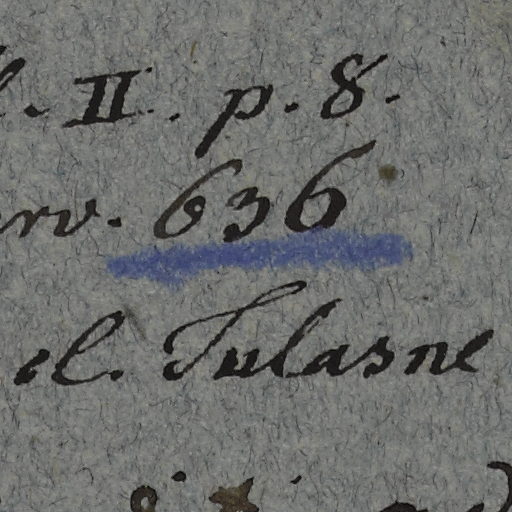 . II. p. 8.
rv. 636
el. Tulasne